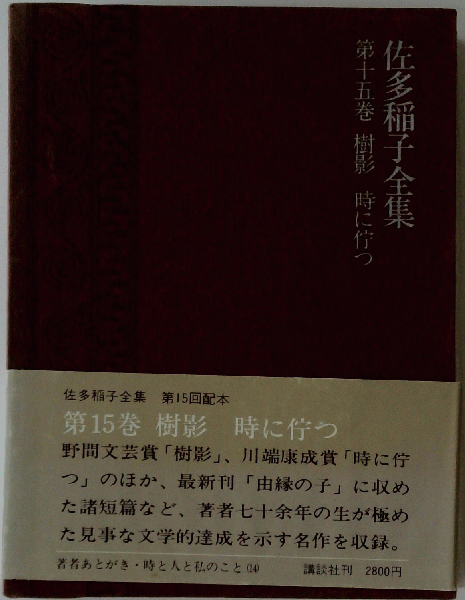 佐多稲子全集
第十五巻 樹影 時に佇つ
佐多稲子全集 第15回配本
第15巻 樹影 時に佇つ
野間文芸賞「樹影」、川端康成賞「時に佇
つ」のほか、最新刊「由縁の子」に収め
た諸短篇など、著者七十余年の生が極め
た見事な文学的達成を示す名作を収録。
著者あとがき・時と人と私のこと(14) 講談社刊 2800円